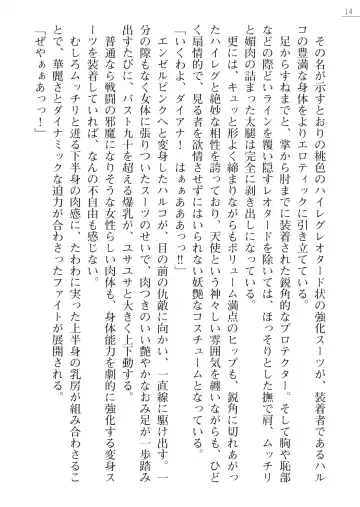 14
その名が示すとおりの桃色のハイレグレオタード状の強化スーツが、装着者であるハル
コの豊満な身体をよりエロティックに引き立てている。
足からすねまでと、掌から肘までに装着された鋭角的なプロテクター。そして胸や恥部
などの際どいラインを覆い隠すレオタードを除いては、ほっそりとした撫で肩、ムッチリ
と媚肉の詰まった太腿は完全に剥き出しになっている。
更には、キュッと形よく締まりながらもボリューム満点のヒップも、鋭角に切れあがっ
たハイレグと絶妙な相性を誇っており、天使という神々しい雰囲気を纏いながらも、ひど
く扇情的で、見る者を欲情させずにはいられない妖艶なコスチュームとなっている。
「いくわよ、ダイアナ！　はぁああああっ!!」
エンゼルピンクへと変身したハルコが、目の前の仇敵に向かい、一直線に駆け出す。一
分の隙もなく女体に張りついたスーツのせいで、肉づきのいい艶やかなおみ足が一歩踏み
出すたびに、バスト九十を超える爆乳が、ユサユサと大きく上下動する。
普通なら戦闘の邪魔になりそうな女性らしい肉体も、身体能力を劇的に強化する変身ス
ーツを装着していれば、なんの不自由も感じない。
むしろムッチリと迸る下半身の肉感に、たわわに実った上半身の乳房が組み合わさるこ
とで、華麗さとダイナミックな迫力が合わさったファイトが展開される。
「ぜやぁぁあっっ！」